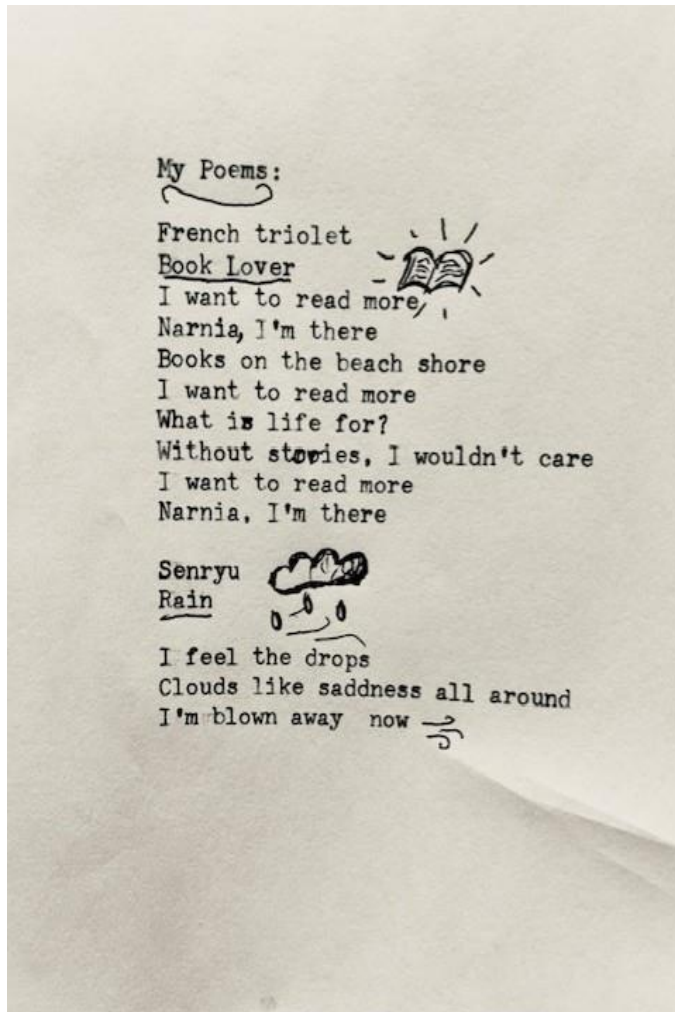 My Poems:
French triolet
Book Lover
I want to read more,
Narnia, I'm there
Books on the beach shore
I want to read more
What is life for?
Without stories, I wouldn't care
I want to read more
Narnia, I'm there
Senryu
Rain
I feel the drops
Clouds like saddness all around
I'm blown away now